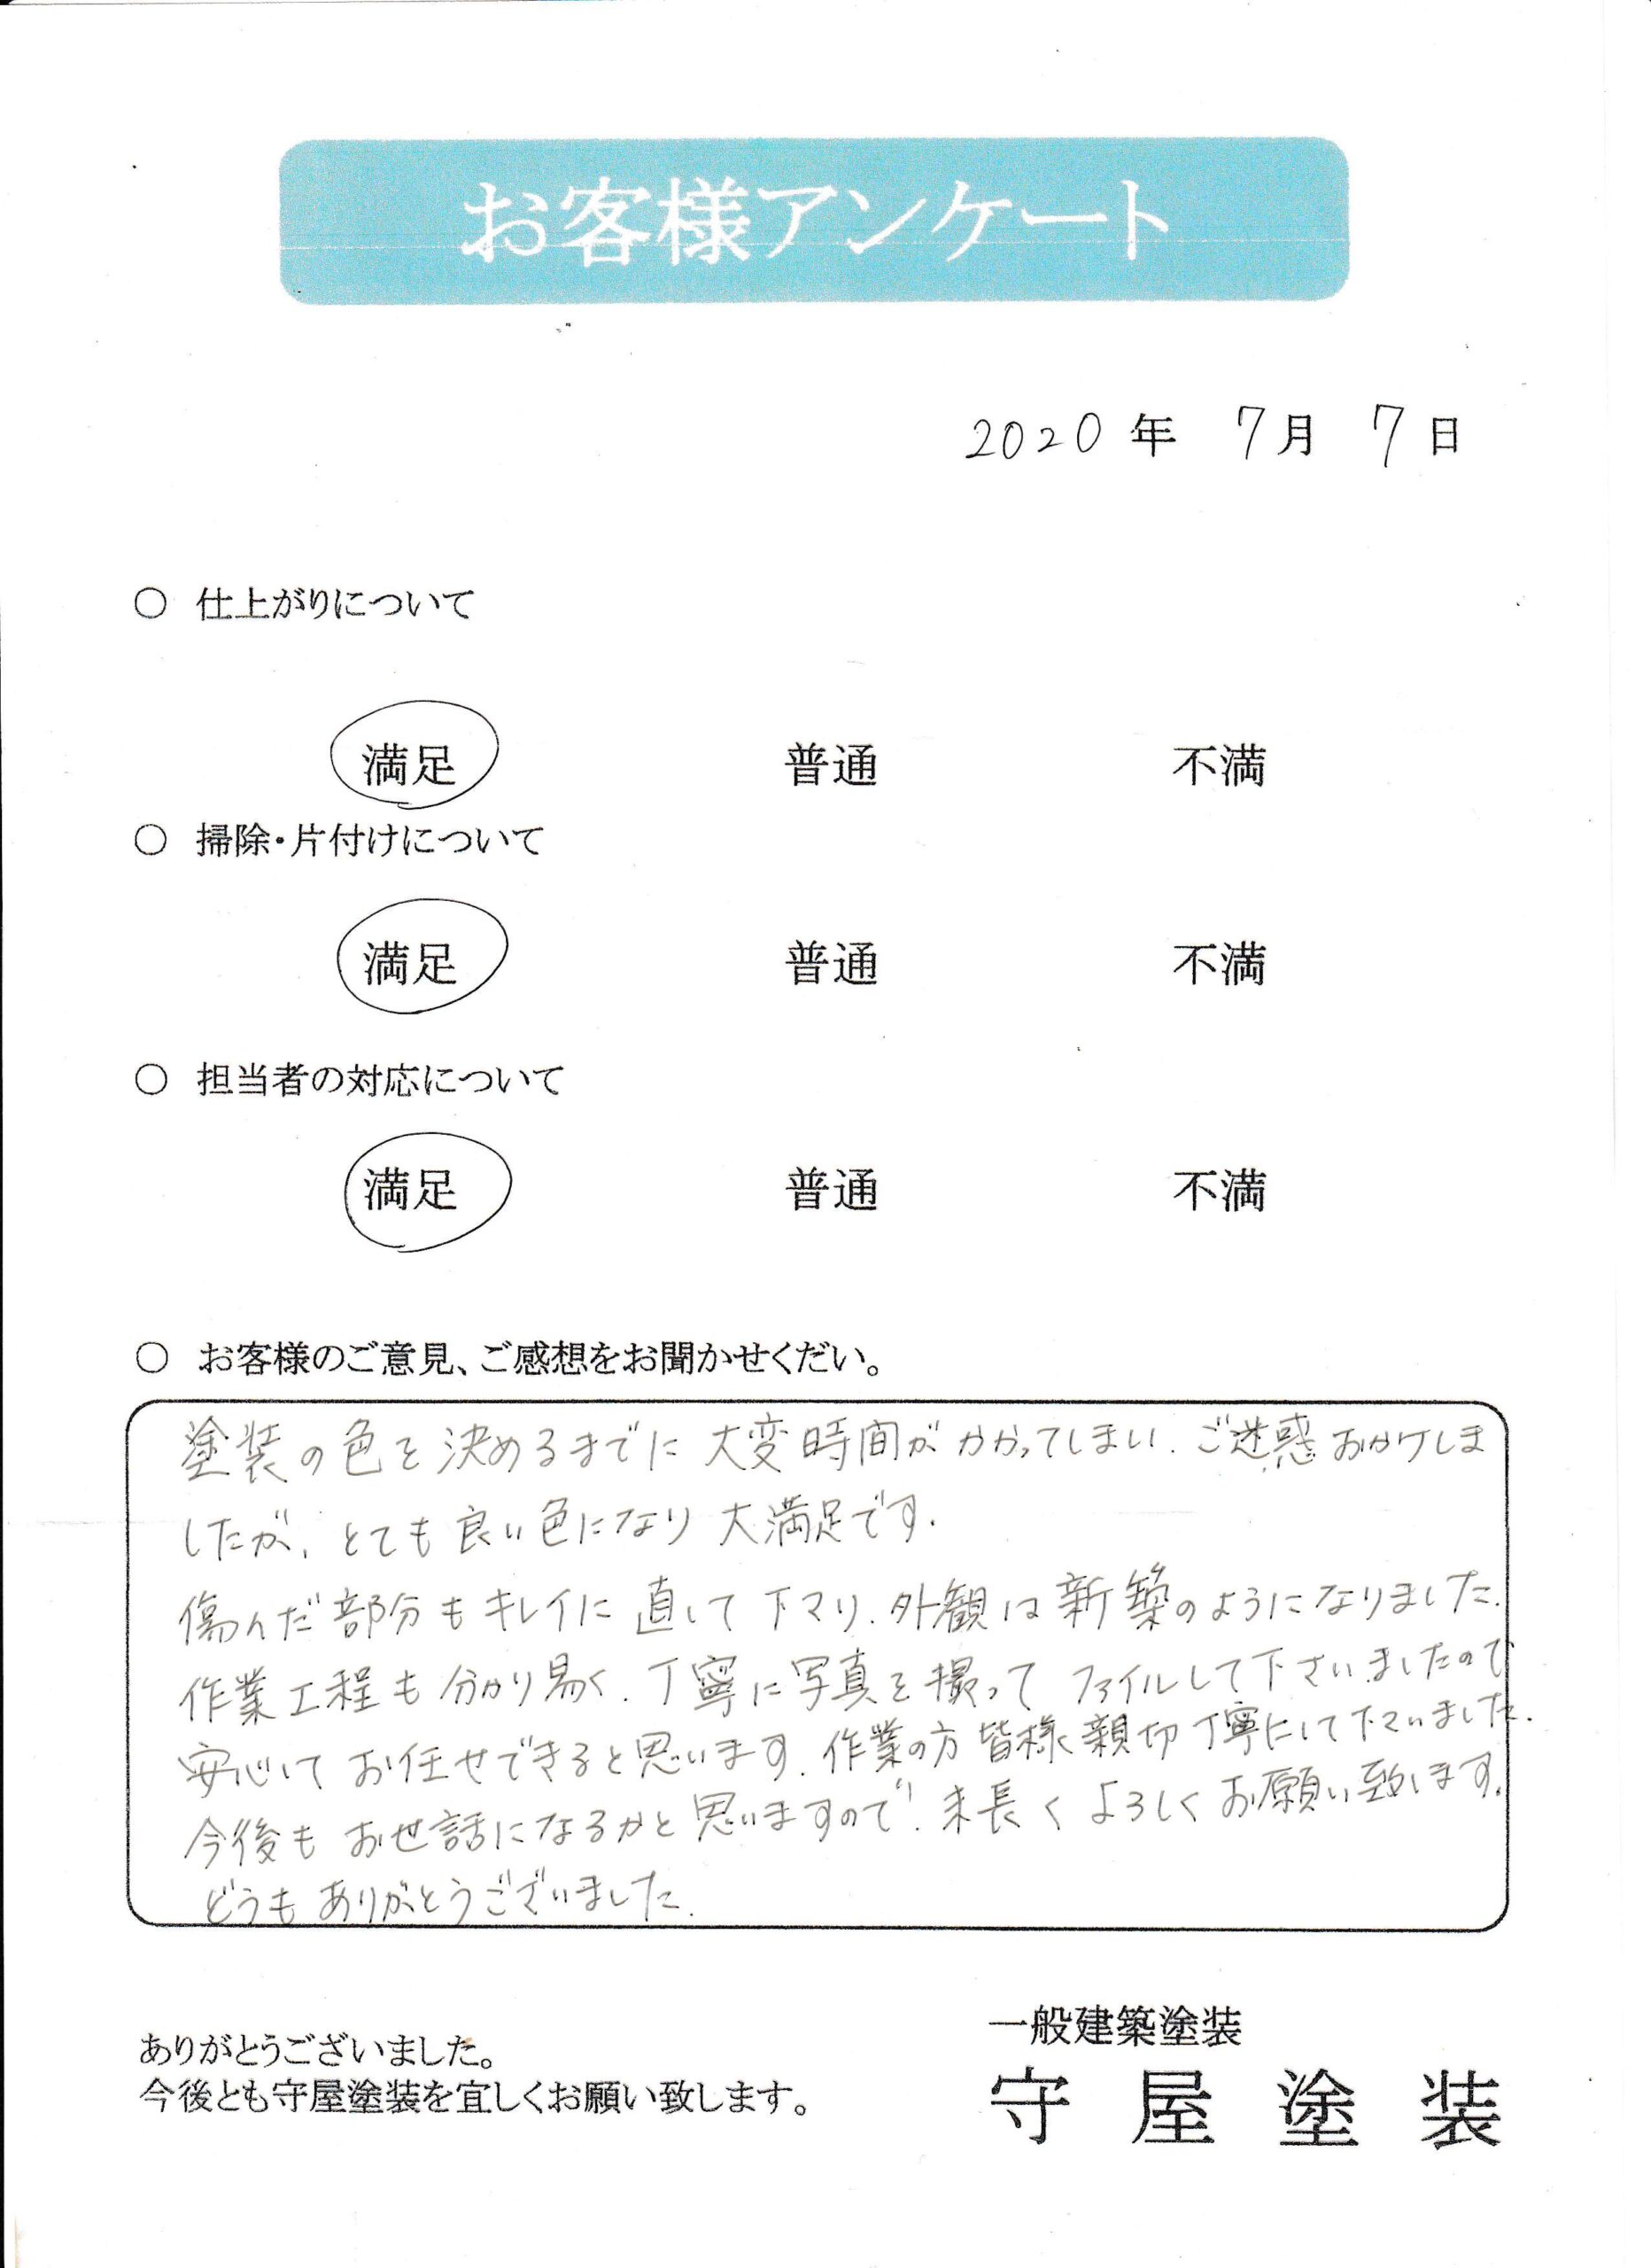 お客様アンケート
2020 年 7 月 7 日
○ 仕上がりについて
満足 普通 不満
○ 掃除・片付けについて
満足 普通 不満
○ 担当者の対応について
満足 普通 不満
○ お客様のご意見、ご感想をお聞かせくだい。
塗装の色を決めるまでに大変時間がかかってしまい、ご迷惑おかけしま
したが、とても良い色になり大満足です。
傷んだ部分もキレイに直して下さり、外観は新築のようになりました。
作業工程も分かり易く、丁寧に写真を撮ってファイルして下さいましたので
安心してお任せできると思います。作業の方皆様親切丁寧にして下さいました。
今後もお世話になるかと思いますので、末長くよろしくお願い致します。
どうもありがとうございました。
ありがとうございました。
今後とも守屋塗装を宜しくお願い致します。
一般建築塗装
守屋塗装